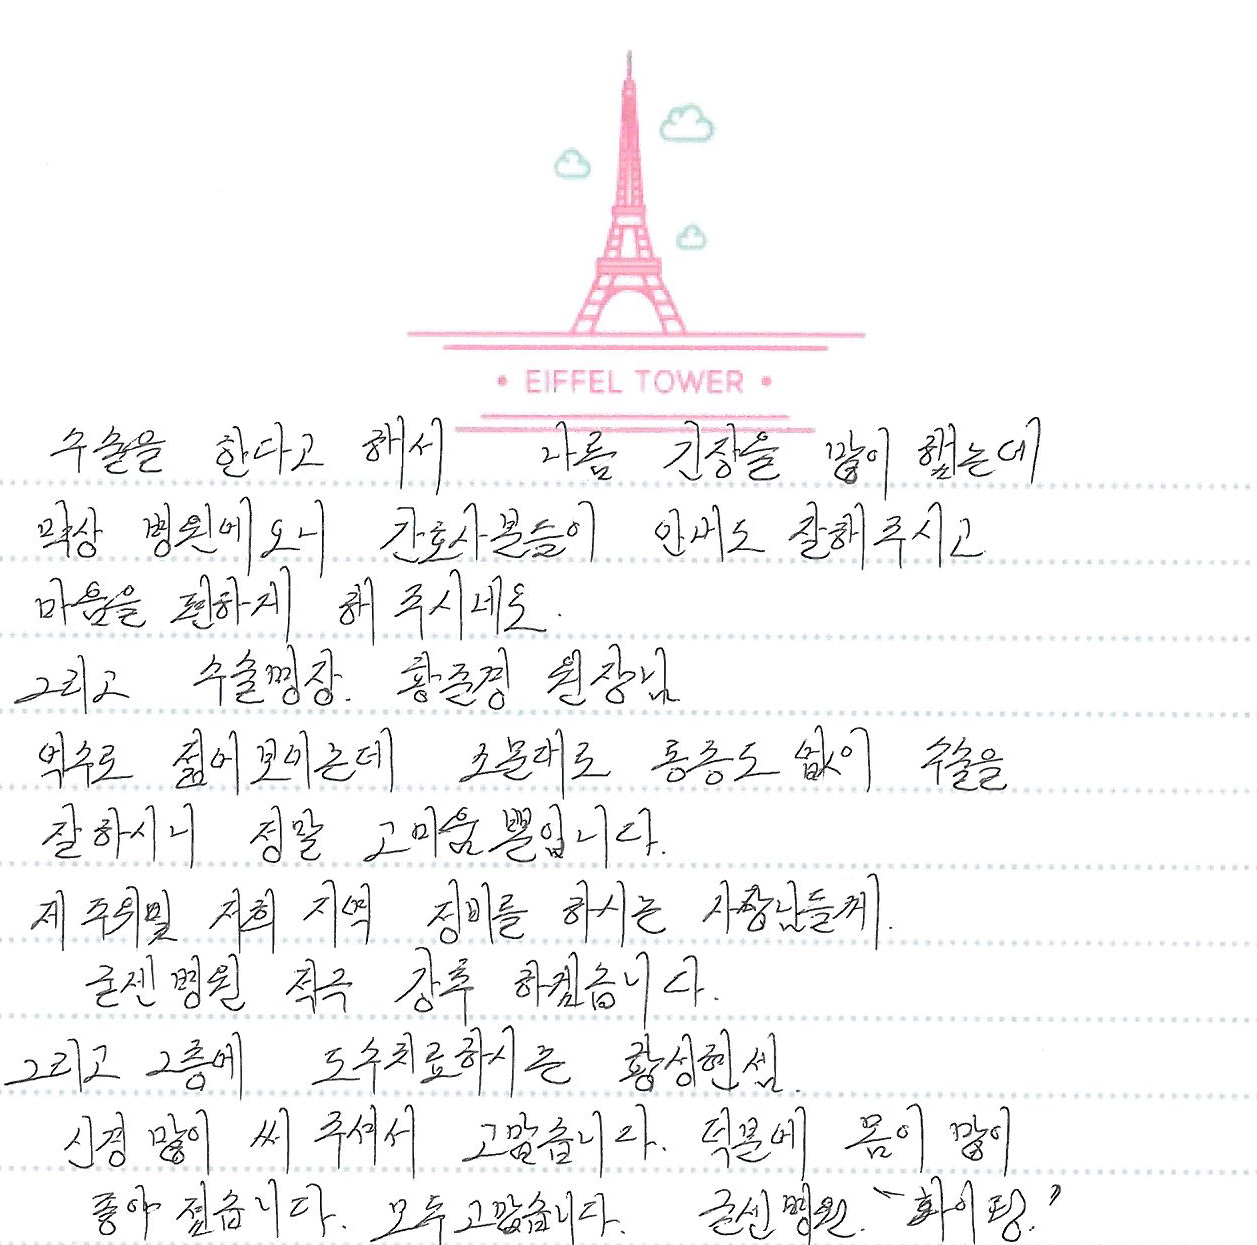 • EIFFEL TOWER •
수술을 한다고 해서 나름 긴장을 많이 했는데
막상 병원에오니 간호사분들이 안내도 잘해주시고
마음을 편하게 해 주시네요.
그리고 수술명장. 황준경 원장님
억수로 젊어보이는데 소문대로 통증도 없이 수술을
잘하시니 정말 고마움뿐입니다.
제 주위및 저희 지역 정비를 하시는 사장님들께.
굳센병원 적극 강추 하겠습니다.
그리고 2층에 도수치료하시는 황성현쌤.
신경 많이 써 주셔서 고맙습니다. 덕분에 몸이 많이
좋아 졌습니다. 모두고맙습니다. 굳센병원. "화이팅."